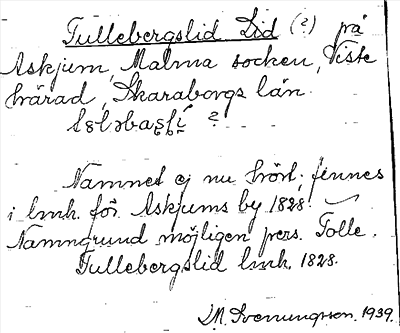 Tullebergslid Lid (?) på
Askjum, Malma socken, Viste
härad, Skaraborgs län.
?
Namnet ej nu hört; finnes
i lmk. för Askjums by 1828.
Namngrund möjligen pers. Tolle.
Tullebergslid lmk. 1828.
M. Svenungsson. 1939.